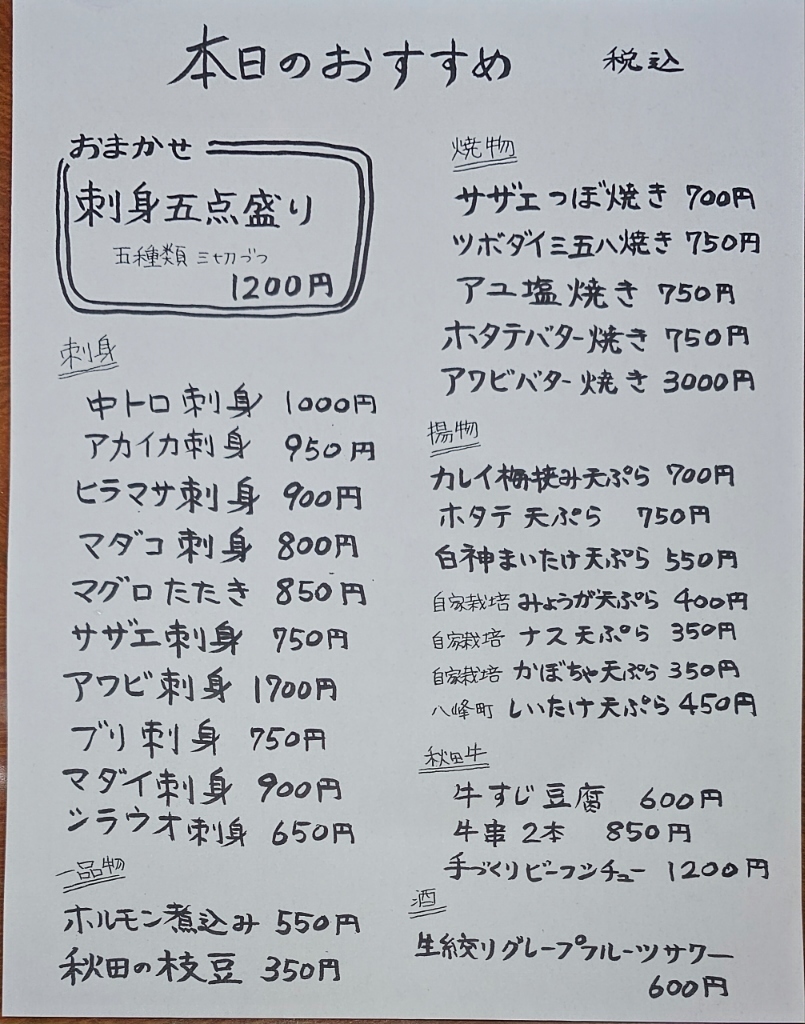 本日のおすすめ 税込
おまかせ
刺身五点盛り
五種類 三切づつ
1200円
刺身
中トロ刺身 1000円
アカイカ刺身 950円
ヒラマサ刺身 900円
マダコ刺身 800円
マグロたたき 850円
サザエ刺身 750円
アワビ刺身 1700円
ブリ刺身 750円
マダイ刺身 900円
シラウオ刺身 650円
一品物
ホルモン煮込み 550円
秋田の枝豆 350円
焼物
サザエつぼ焼き 700円
ツボダイ三五八焼き 750円
アユ塩焼き 750円
ホタテバター焼き 750円
アワビバター焼き 3000円
揚物
カレイ梅挟み天ぷら 700円
ホタテ天ぷら 750円
白神まいたけ天ぷら 550円
自家栽培 みょうが天ぷら 400円
自家栽培 ナス天ぷら 350円
自家栽培 かぼちゃ天ぷら 350円
八峰町 しいたけ天ぷら 450円
秋田牛
牛すじ豆腐 600円
牛串2本 850円
手づくりビーフシチュー 1200円
酒
生絞りグレープフルーツサワー
600円